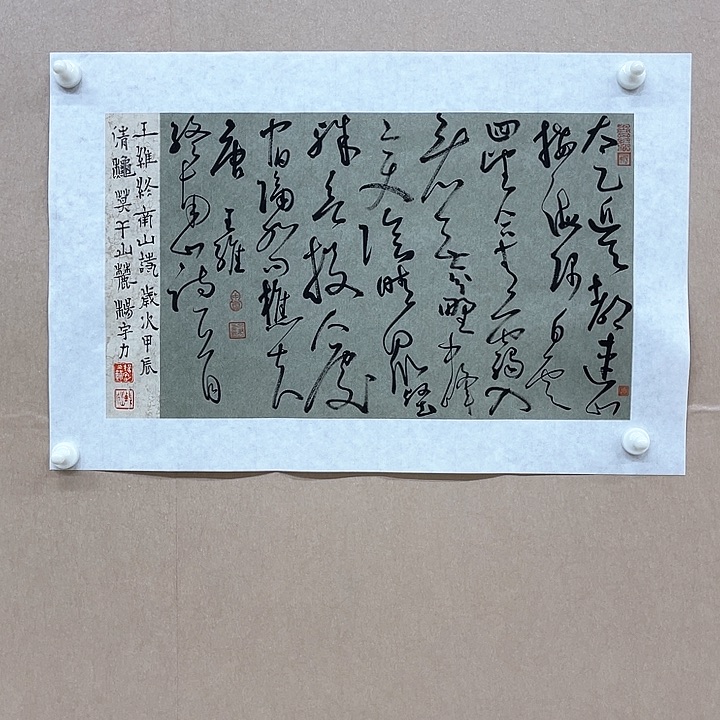 太乙近天都連山
接海隅白雲
回望合青靄入
看無分野中峰
變陰晴眾壑
殊欲投人處
宿隔水問樵夫
唐王維
終南山詩一首
王維終南山詩歲次甲辰
清龝莫干山麓楊宇力